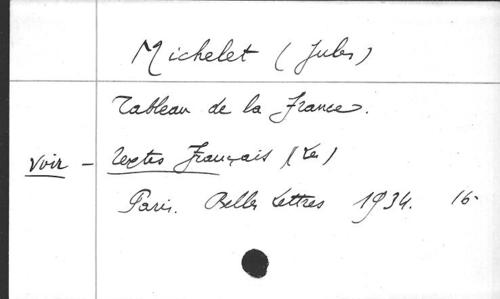 Michelet (Jules)
Tableau de la France.
voir - Textes Français (Les)
Paris. Belles Lettres 1934. 16-